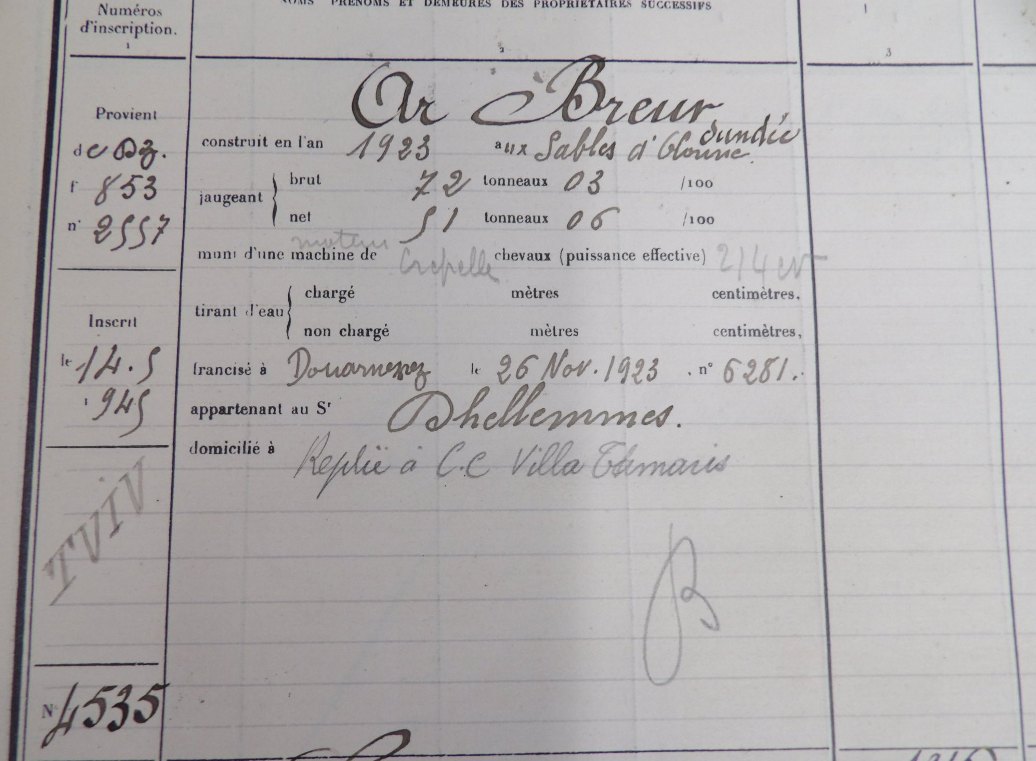 Numéros
d'inscription.
1
NOMS PRÉNOMS ET DEMEURES DES PROPRIÉTAIRES SUCCESSIFS
2
3
Provient
de Dz.
f° 853
n° 2557
Inscrit
le 14.5
1945
TVIV
N° 4535
Ar Breur
Dundée
construit en l'an 1923 aux Sables d'Olonne
jaugeant brut 72 tonneaux 03 /100
net 51 tonneaux 06 /100
moteur
muni d'une machine de Crepelle chevaux (puissance effective)
tirant d'eau chargé mètres centimètres.
non chargé mètres centimètres,
francisé à Douarnenez le 26 Nov. 1923. n° 6281.
appartenant au Sr Dhellemmes.
domicilié à Replié à C.C Villa Tamaris
B